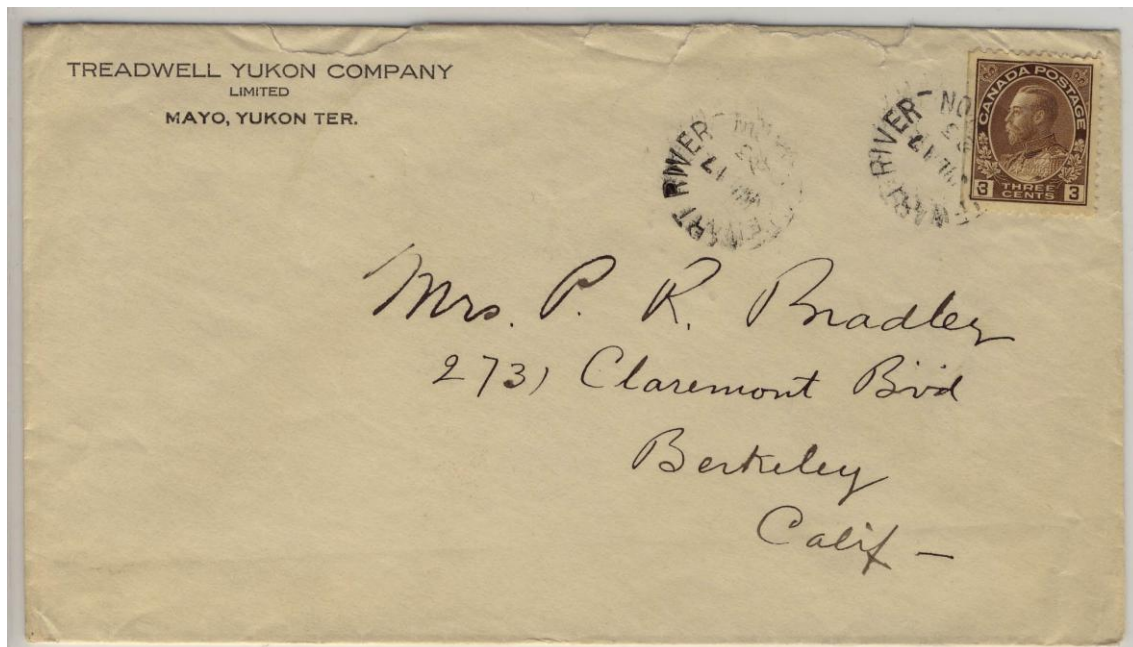 TREADWELL YUKON COMPANY
LIMITED
MAYO, YUKON TER.
RIVER
17
RIVER
17
CANADA POSTAGE
3 THREE CENTS 3
Mrs. P. R. Bradley
2731 Claremont Bvd
Berkeley
Calif –